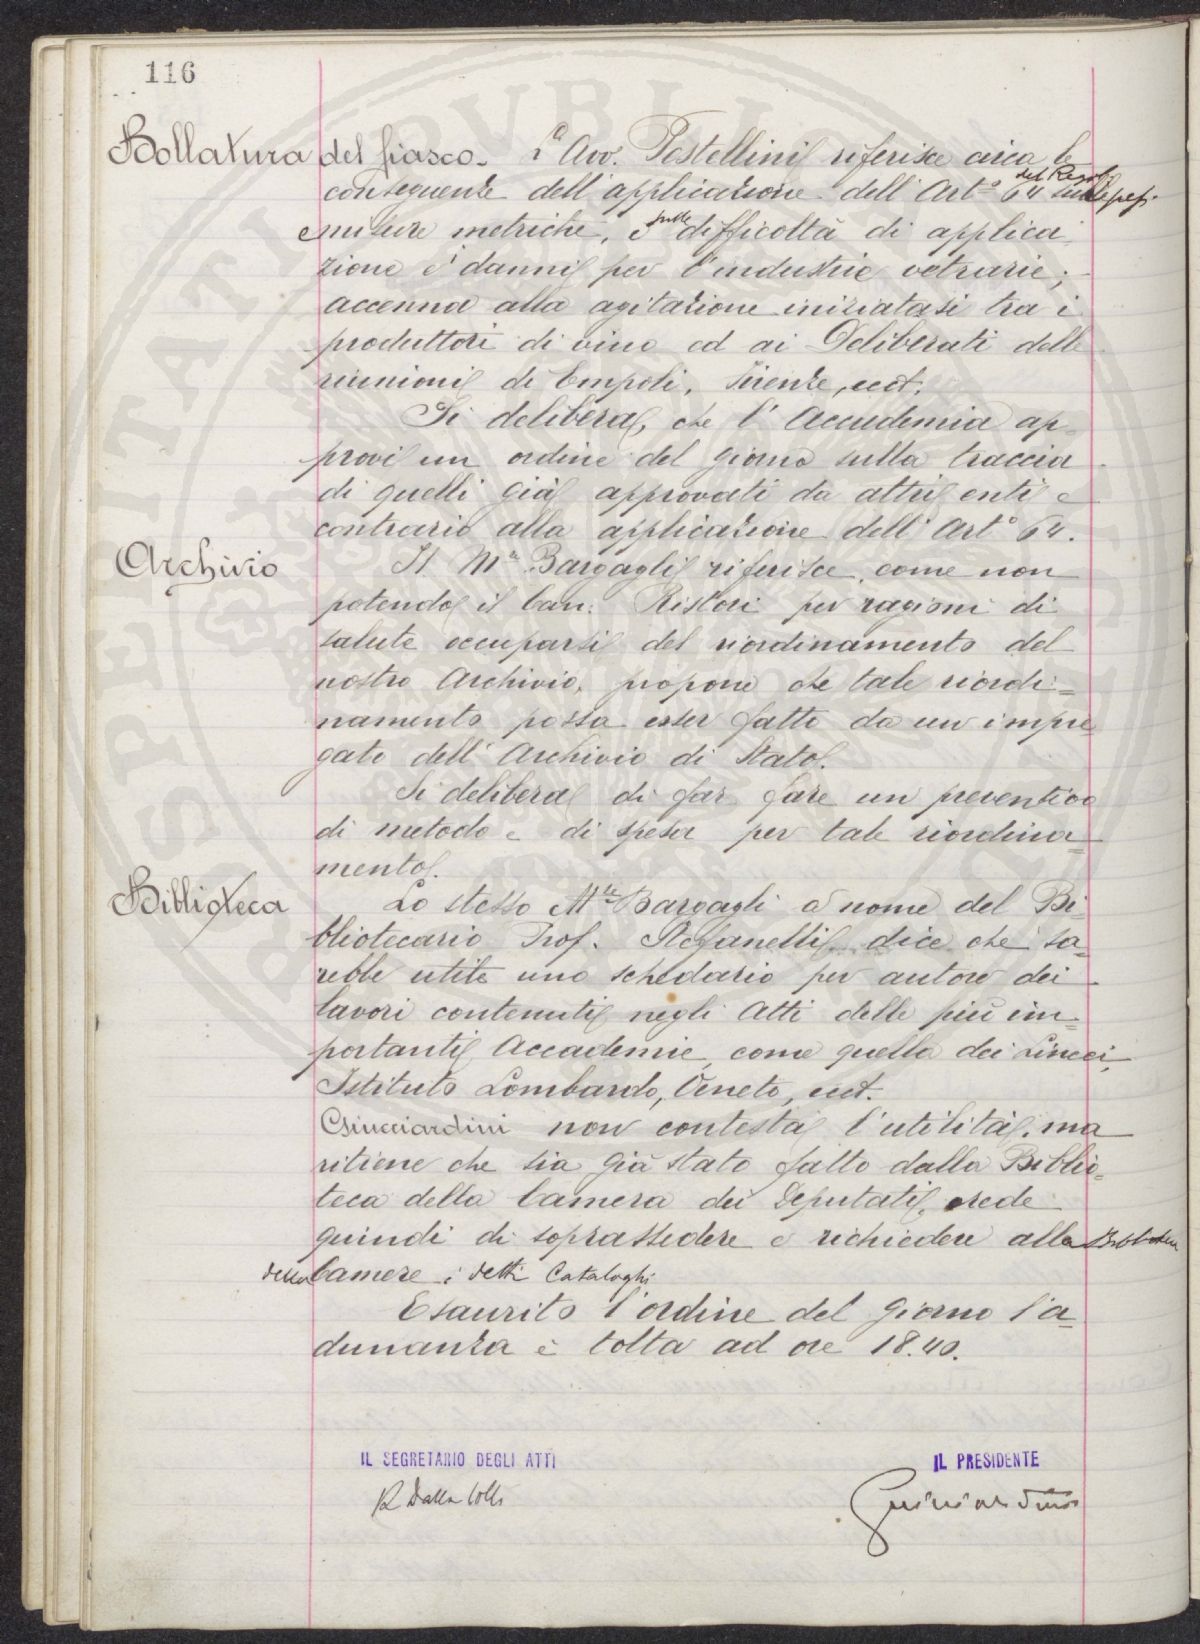 116
Bollatura del fiasco. L'Avv. Pestellini riferisce circa le
conseguenze dell'applicazione dell'Art.° 64 del Regol. sui pesi
e misure metriche, e sulle difficoltà di applica
zione e danni per l'industrie vetrarie;
accenna alla agitazione iniziatasi tra i
produttori di vino ed ai Deliberati delle
riunioni di Empoli, Firenze, ecct.
Si delibera, che l'Accademia ap-
provi un ordine del giorno sulla traccia
di quelli già approvati da altri enti e
contrario alla applicazione dell'Art.° 64.
Archivio Il M.se Bargagli riferisce, come non
potendo il Can. Ristori per ragioni di
salute occuparsi del riordinamento del
nostro Archivio, propone che tale riordi=
namento possa esser fatto da un impie
gato dell'Archivio di Stato.
Si delibera di far fare un preventivo
di metodo e di spesa per tale riordina=
mento.
Biblioteca Lo stesso M.se Bargagli a nome del Bi-
bliotecario Prof. Stefanelli dice che sa-
rebbe utile uno schedario per autore dei
lavori contenuti negli Atti delle più im-
portanti Accademie, come quella dei Lincei,
Istituto Lombardo, Veneto, ecct.
Guicciardini non contesta l'utilità, ma
ritiene che sia già stato fatto dalla Biblio-
teca della Camera dei Deputati, crede
quindi di soprassedere e richiedere alla Biblioteca
della Camera i detti Cataloghi
Esaurito l'ordine del giorno l'a=
dunanza è tolta ad ore 18.40.
IL SEGRETARIO DEGLI ATTI
IL PRESIDENTE
R Dalla Volta
Guicciardini